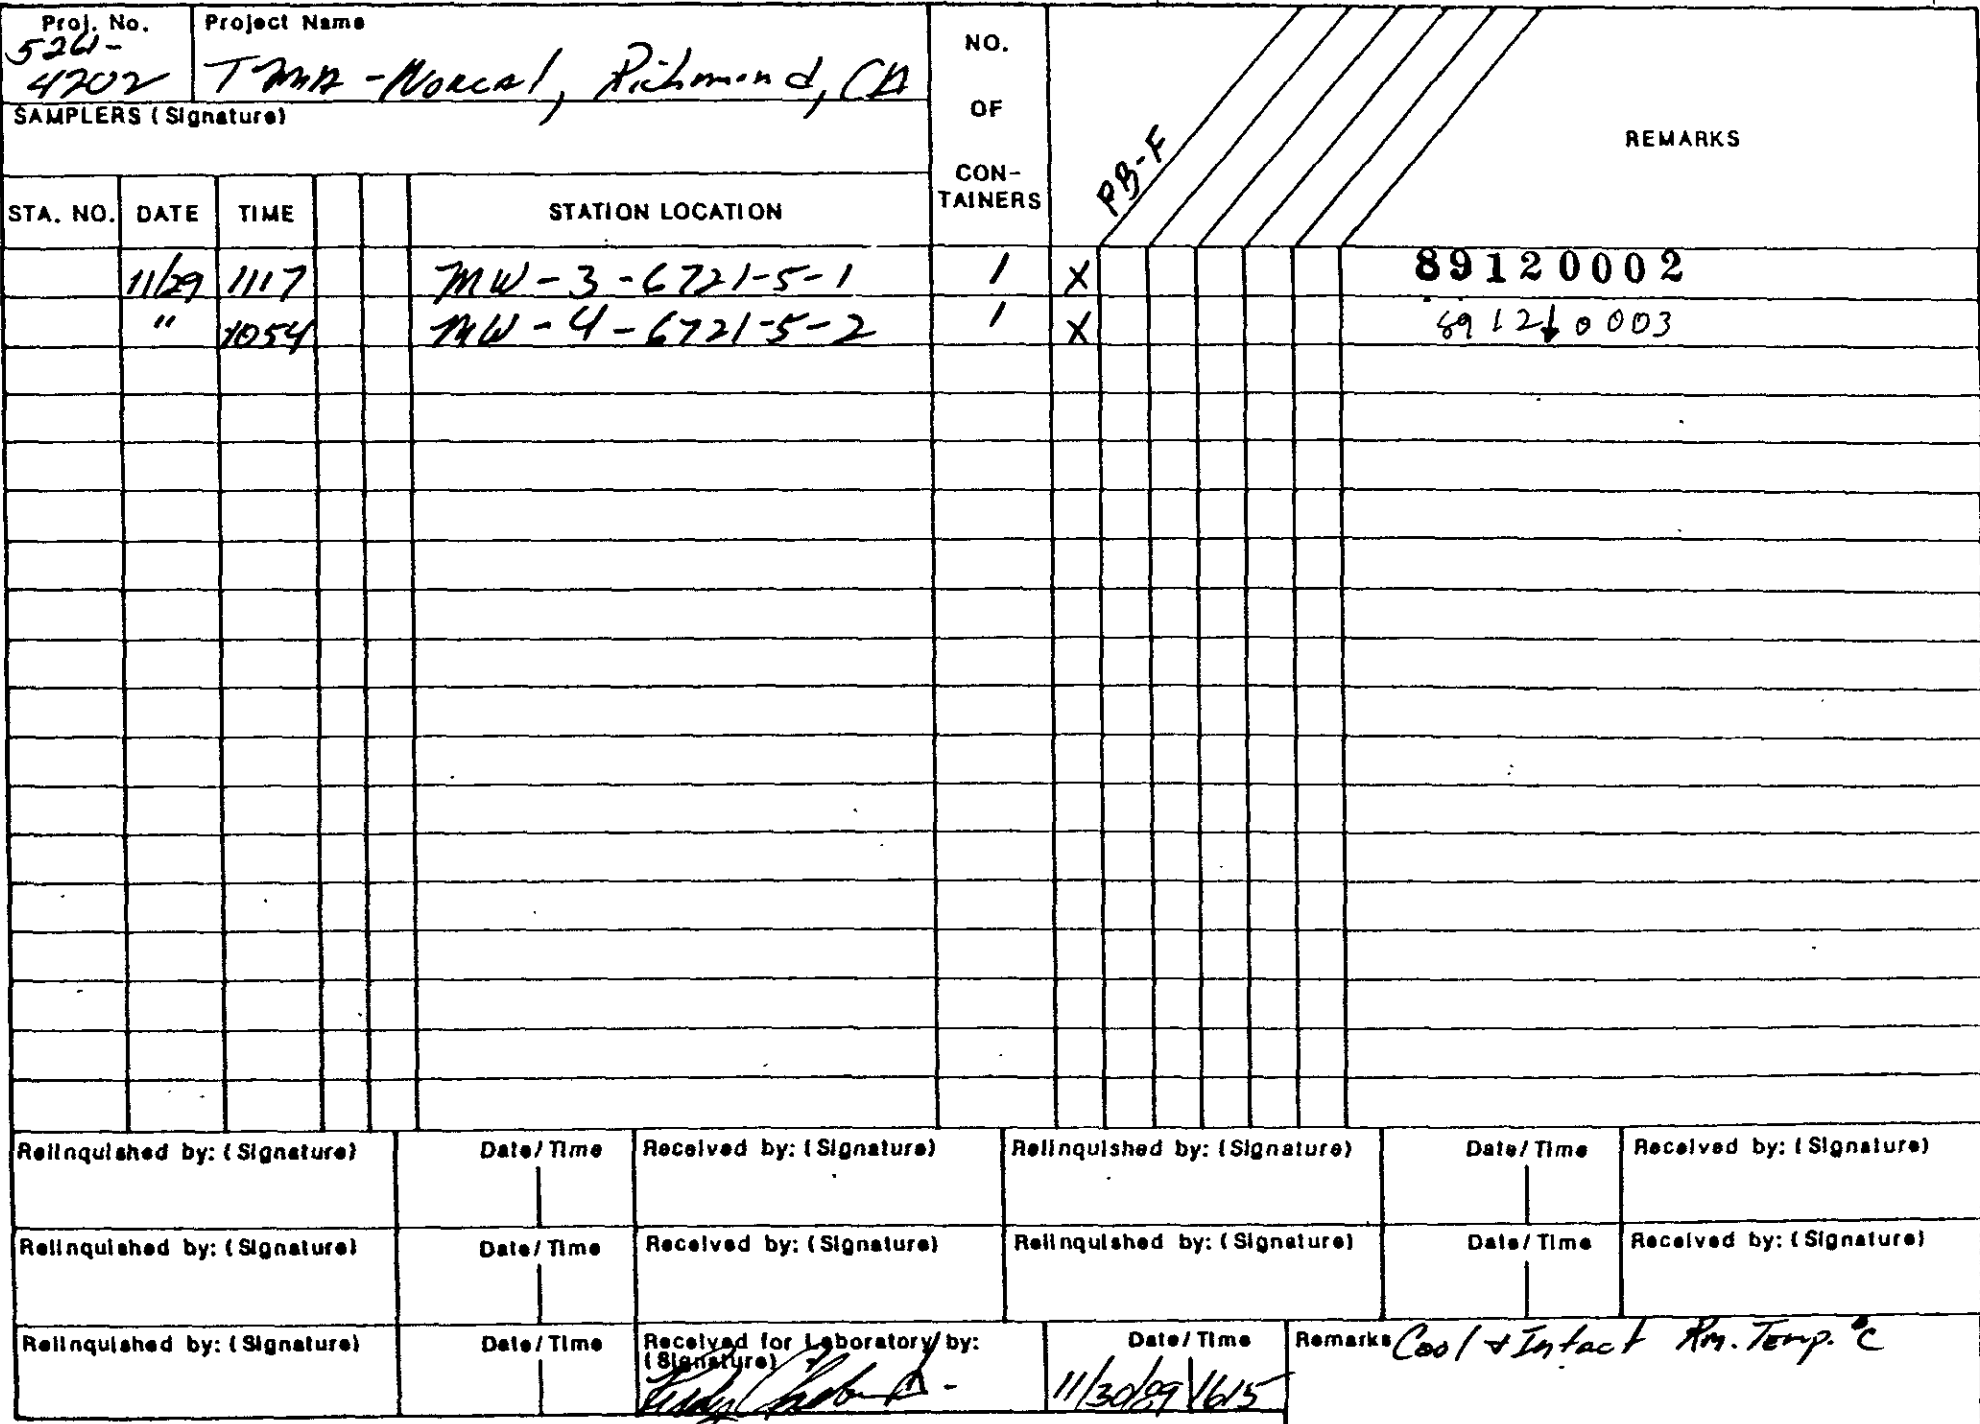 Proj. No.
5261-
4202
Project Name
TMA-Norcal, Richmond, CA
SAMPLERS (Signature)
NO.
OF
CON-
TAINERS
PB-F
REMARKS
STA. NO. DATE TIME STATION LOCATION
11/29 1117 MW-3-6721-5-1 1 X 89120002
" 1054 MW-4-6721-5-2 1 X 8912↓0003
Relinquished by: (Signature) Date/Time Received by: (Signature) Relinquished by: (Signature) Date/Time Received by: (Signature)
Relinquished by: (Signature) Date/Time Received by: (Signature) Relinquished by: (Signature) Date/Time Received by: (Signature)
Relinquished by: (Signature) Date/Time Received for Laboratory by: (Signature) Date/Time Remarks Cool + Intact Rm. Temp. °C
11/30/89 1615